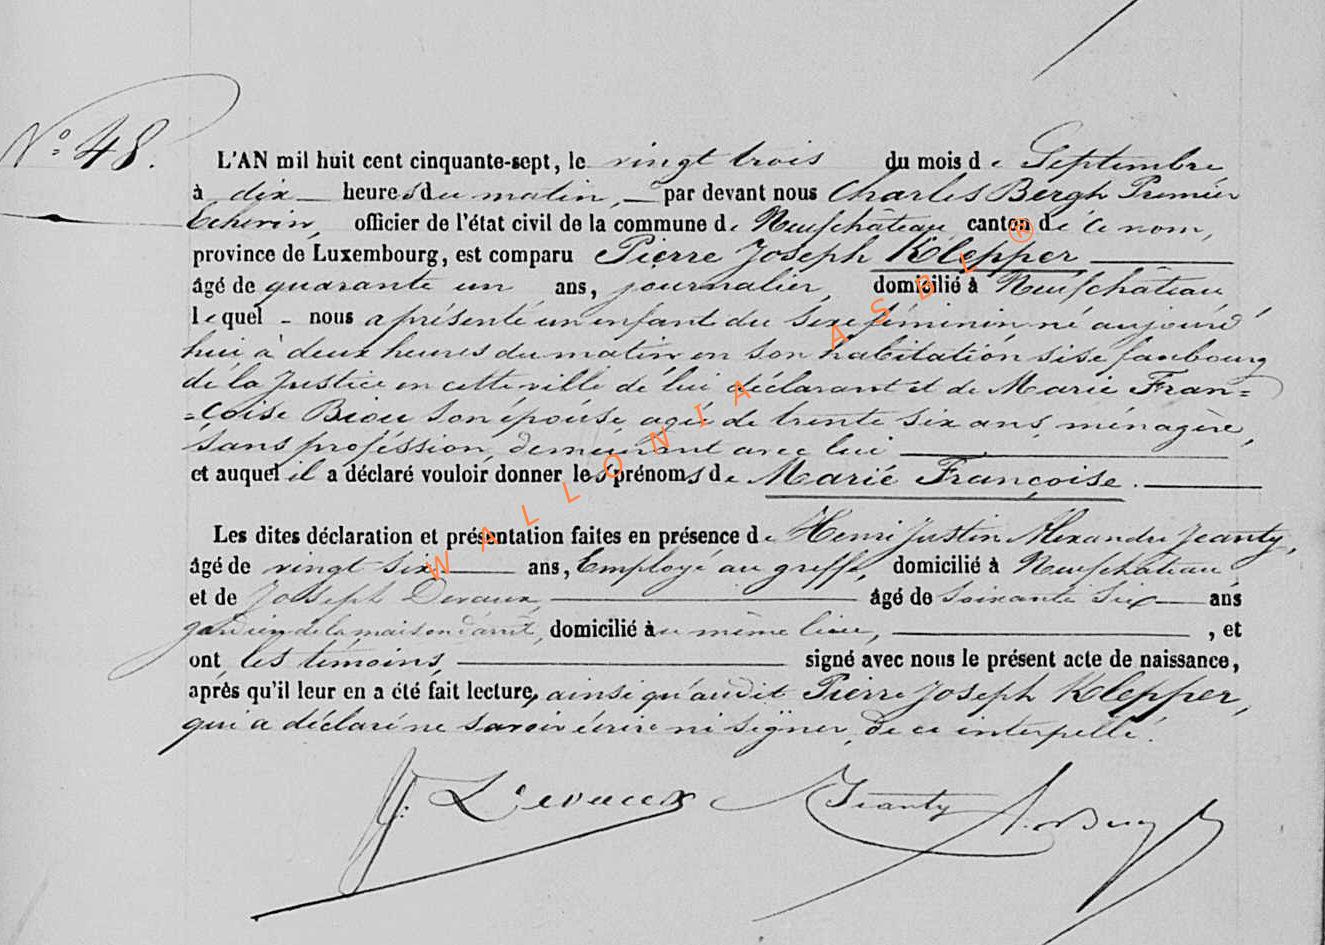 N° 48.
L'AN mil huit cent cinquante-sept, le vingt trois du mois de Septembre
à dix heures du matin, par devant nous Charles Bergh Premier
Echevin, officier de l'état civil de la commune de Neufchâteau canton de ce nom,
province de Luxembourg, est comparu Pierre Joseph Klepper
âgé de quarante un ans, journalier, domicilié à Neufchâteau
lequel nous a présenté un enfant du sexe féminin né aujourd'
hui à deux heures du matin en son habitation sise faubourg
de la Justice en cette ville de lui déclarant et de Marie Fran=
=çoise Biou son épouse, agée de trente six ans, ménagère,
sans profession, demeurant avec lui
et auquel il a déclaré vouloir donner les prénoms de Marie Françoise.
Les dites déclaration et présentation faites en présence de Henri Justin Alexandre Jeanty,
âgé de vingt six ans, Employé au greffe, domicilié à Neufchâteau
et de Joseph Devaux, âgé de soixante six ans
gardien de la maison d'arrêt, domicilié au même lieu, , et
ont les témoins, signé avec nous le présent acte de naissance,
après qu'il leur en a été fait lecture, ainsi qu'audit Pierre Joseph Klepper,
qui a déclaré ne savoir écrire ni signer, de ce interpellé.
J: Devaux Jeanty
WALLONIA ASBL ®